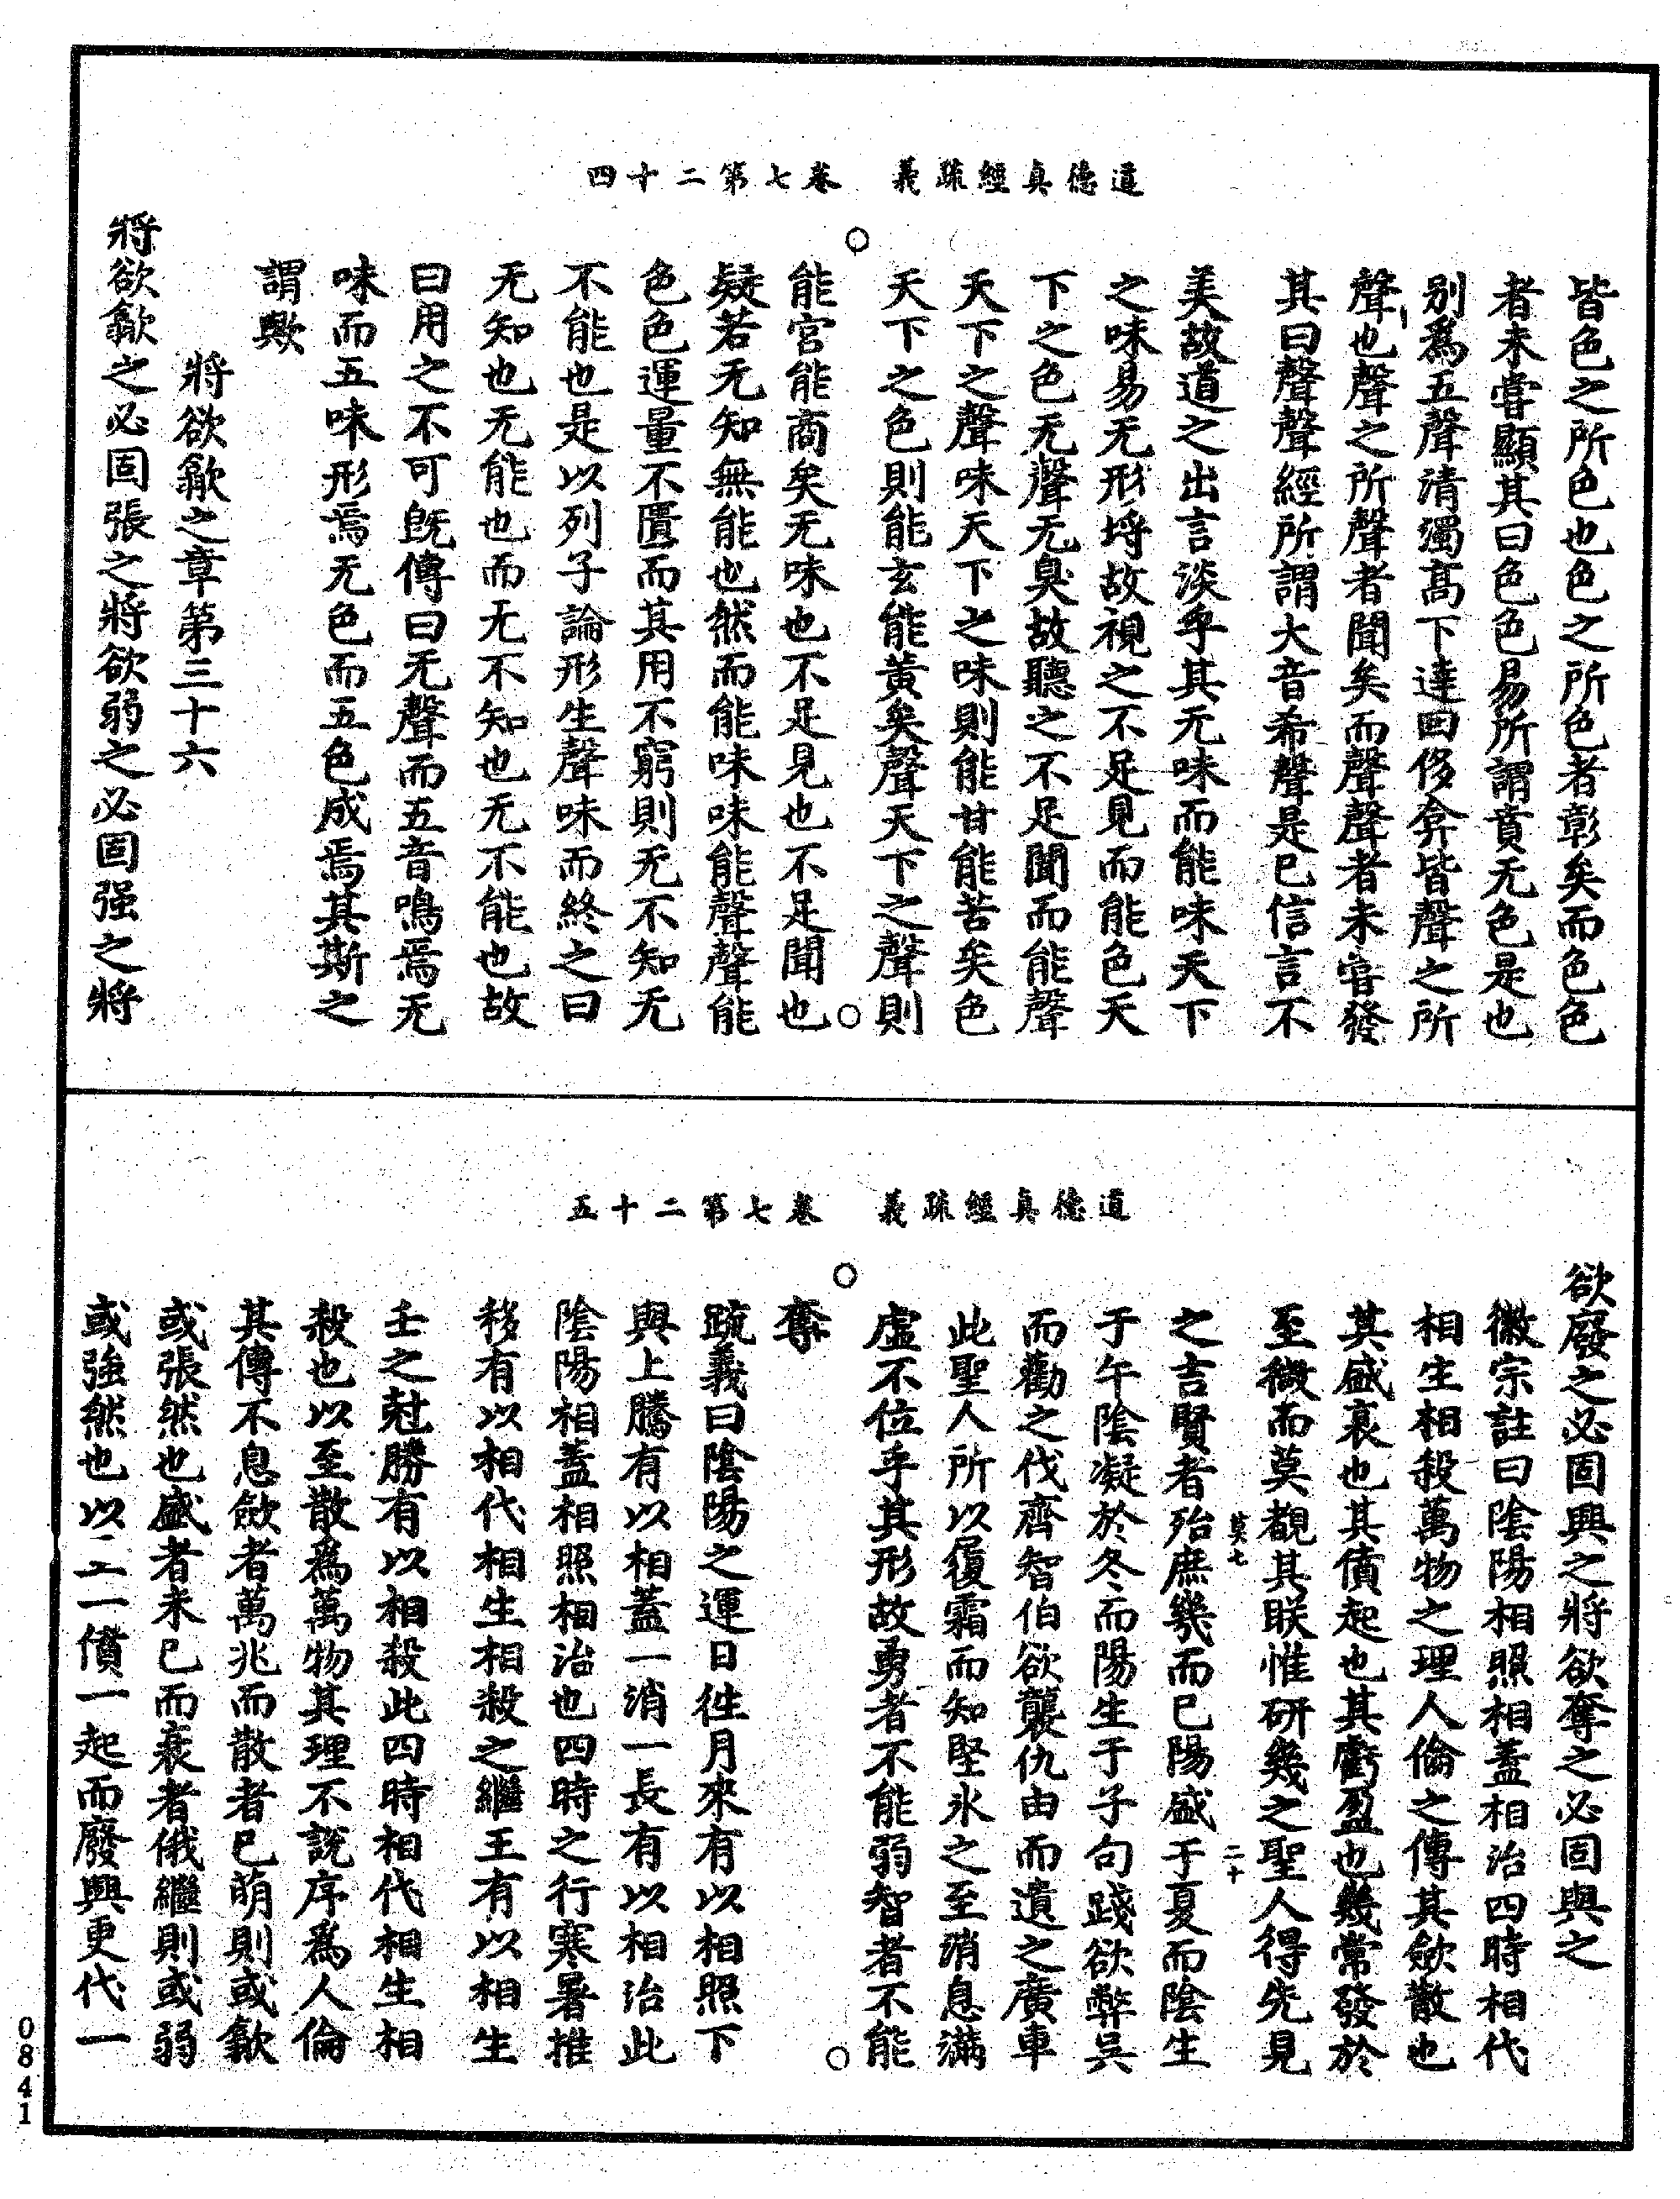 道德真經疏義　卷七第二十四
皆色之所色也色之所色者彰矣而色色
者未嘗顯其曰色色易所謂賁无色是也
別爲五聲清濁高下達回侈弇皆聲之所
聲也聲之所聲者聞矣而聲聲者未甞發
其曰聲聲經所謂大音希聲是已信言不
美故道之出言淡乎其无味而能味天下
之味易无形埒故視之不足見而能色天
下之色无聲无臭故聽之不足聞而能聲
天下之聲味天下之味則能甘能苦矣色
天下之色則能玄能黃矣聲天下之聲則
能宮能商矣无味也不足見也不足聞也
疑若无知無能也然而能味味能聲聲能
色色運量不匱而其用不窮則无不知无
不能也是以列子論形生聲味而終之曰
无知也无能也而无不知也无不能也故
曰用之不可旣傳曰无聲而五音鳴焉无
味而五味形焉无色而五色成焉其斯之
謂歟
將欲歙之章第三十六
將欲歙之必固張之將欲弱之必固强之將
道德真經疏義　卷七第二十五
欲廢之必固興之將欲奪之必固與之
徽宗註曰陰陽相照相蓋相治四時相代
相生相殺萬物之理人倫之傳其斂散也
其盛衰也其僨起也其虧盈也幾常發於
至微而莫覩其眹惟研幾之聖人得先見
之吉賢者殆庶幾而已陽盛于夏而陰生
于午陰凝於冬而陽生于子句踐欲弊吳
而勸之伐齊智伯欲襲仇由而遺之廣車
此聖人所以履霜而知堅氷之至消息滿
虛不位乎其形故勇者不能弱智者不能
奪
疏義曰陰陽之運日徃月來有以相照下
與上騰有以相蓋一消一長有以相治此
陰陽相蓋相照相治也四時之行寒暑推
移有以相代相生相殺之繼王有以相生
壬之尅勝有以相殺此四時相代相生相
殺也以至散爲萬物其理不說序爲人倫
其傳不息斂者萬兆而散者已萌則或歙
或張然也盛者未已而衰者俄繼則或弱
或強然也以二一僨一起而廢興更代一
莫七
二十
0841